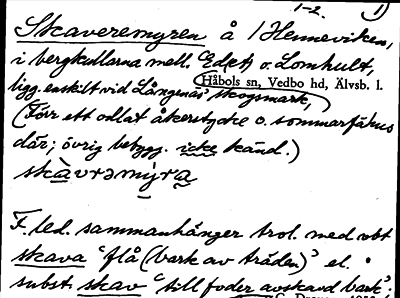 1-2. 1)
Skaveremyren å /Henneviken,
i bergkullarna mell. Edet o. Lomhult,
Håbols sn, Vedbo hd, Älvsb. l.
ligg. enskilt vid Långenäs skogsmark,
(Förr ett odlat åkerstycke o. sommarfähus
där; övrig bebygg. icke känd.)
skàvrəmýra
F. led. sammanhänger trol. med vbt
skava "flå (bark av träden)" el.
subst. skav "till foder avskavd bark".